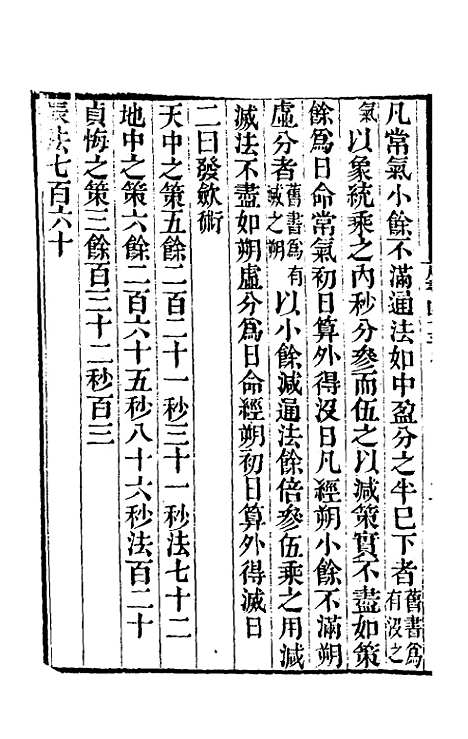 凡常氣小餘不滿通法如中盈分之半巳下者舊書爲有沒之
氣以象統乘之內秒分參而伍之以減策實不盡如策
餘爲日命常氣初日算外得沒日凡經朔小餘不滿朔
虛分者舊書爲有滅之朔以小餘減通法餘倍參伍乘之用減
滅法不盡如朔虛分爲日命經朔初日算外得滅日
二曰發斂術
天中之策五餘二百二十一秒三十一秒法七十二
地中之策六餘二百六十五秒八十六秒法百二十
貞悔之策三餘百三十二秒百三
辰法七百六十